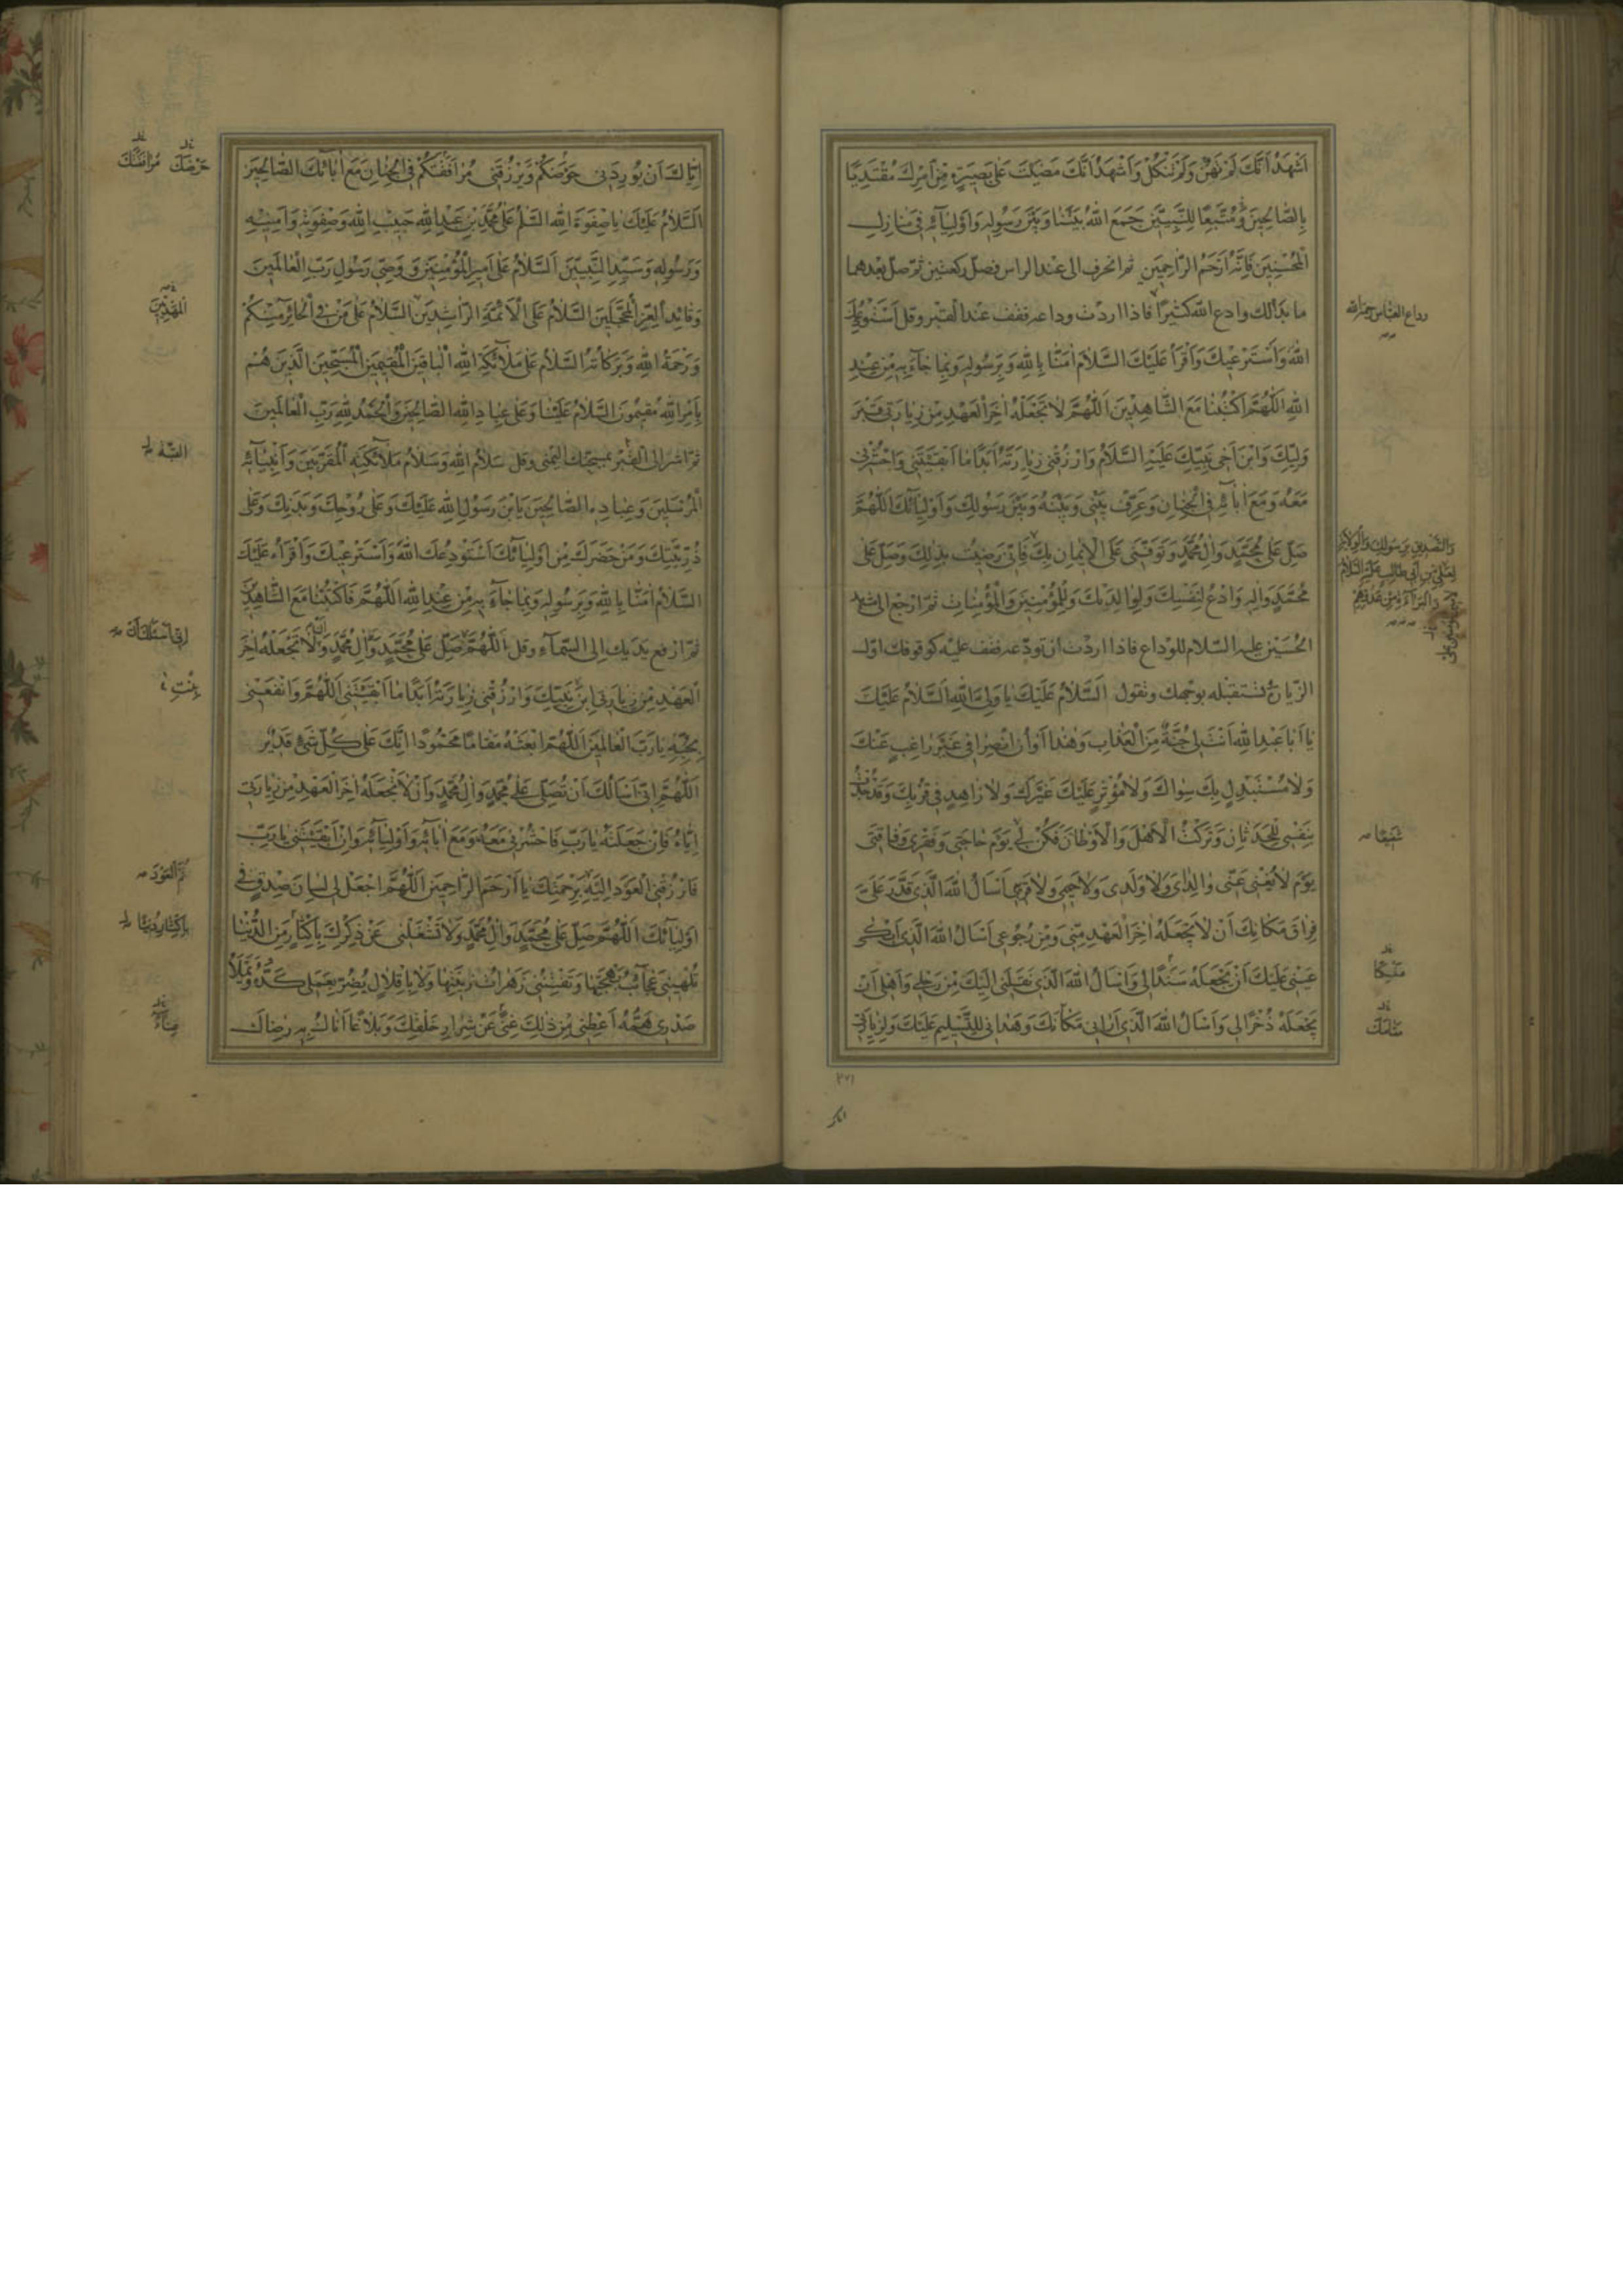 اَشْهَدُ اَنَّكَ لَمْ تَهِنْ وَلَمْ تَنْكُلْ وَاَشْهَدُ اَنَّكَ مَضَيْتَ عَلٰى بَصِيرَةٍ مِنْ اَمْرِكَ مُقْتَدِيًا
بِالصَّالِحِينَ وَمُتَّبِعًا لِلنَّبِيِّينَ جَمَعَ اللّٰهُ بَيْنَنَا وَبَيْنَ رَسُولِهِ وَاَوْلِيَآئِهِ فِي مَنَازِلِ
الْمُحْسِنِينَ فَاِنَّهُ اَرْحَمُ الرَّاحِمِينَ ثم انحرف الى عند الراس فصل ركعتين ثم صل بعدهما
ما بدا لك وادع الله كثيرا فاذا اردت وداعه فقف عند القبر وقل اَسْتَوْدِعُكَ
وداع العباس
اللّٰهَ وَاَسْتَرْعِيكَ وَاَقْرَأُ عَلَيْكَ السَّلَامَ اٰمَنَّا بِاللّٰهِ وَبِرَسُولِهِ وَبِمَا جَآءَ بِهِ مِنْ عِنْدِ
اللّٰهِ اَللّٰهُمَّ اكْتُبْنَا مَعَ الشَّاهِدِينَ اَللّٰهُمَّ لَا تَجْعَلْهُ اٰخِرَ الْعَهْدِ مِنْ زِيَارَتِي قَبْرَ
وَلِيِّكَ وَابْنِ اَخِي نَبِيِّكَ عَلَيْهِ السَّلَامُ وَارْزُقْنِي زِيَارَتَهُ اَبَدًا مَا اَبْقَيْتَنِي وَاحْشُرْنِي
مَعَهُ وَمَعَ اٰبَآئِهِ فِي الْجِنَانِ وَعَرِّفْ بَيْنِي وَبَيْنَهُ وَبَيْنَ رَسُولِكَ وَاَوْلِيَآئِكَ اَللّٰهُمَّ
صَلِّ عَلٰى مُحَمَّدٍ وَاٰلِ مُحَمَّدٍ وَتَوَفَّنِي عَلَى الْاِيمَانِ بِكَ فَاِنِّي رَضِيتُ بِذٰلِكَ وَصَلِّ عَلٰى
وَالتَّصْدِيقِ بِرَسُولِكَ وَالْوِلَايَةِ
لِعَلِيِّ بْنِ اَبِي طَالِبٍ عَلَيْهِ السَّلَامُ
وَالْبَرَآءَةِ مِنْ عَدُوِّهِمْ
مُحَمَّدٍ وَاٰلِهِ وَادْعُ لِنَفْسِكَ وَلِوَالِدَيْكَ وَلِلْمُؤْمِنِينَ وَالْمُؤْمِنَاتِ ثم ارجع الى مشهد
الحسين عليه السلام للوداع فاذا اردت ان تودعه فقف عليه كوقوفك اول
الزيارة تستقبله بوجهك وتقول اَلسَّلَامُ عَلَيْكَ يَا وَلِيَّ اللّٰهِ اَلسَّلَامُ عَلَيْكَ
يَا اَبَا عَبْدِ اللّٰهِ اَنْتَ لِي جُنَّةٌ مِنَ الْعَذَابِ وَهٰذَا اَوَانُ انْصِرَافِي غَيْرَ رَاغِبٍ عَنْكَ
وَلَا مُسْتَبْدِلٍ بِكَ سِوَاكَ وَلَا مُؤْثِرٍ عَلَيْكَ غَيْرَكَ وَلَا زَاهِدٍ فِي قُرْبِكَ وَقَدْ جُدْتُ
بِنَفْسِي لِلْحَدَثَانِ وَتَرَكْتُ الْاَهْلَ وَالْاَوْطَانَ فَكُنْ لِي يَوْمَ حَاجَتِي وَفَقْرِي وَفَاقَتِي
شَفِيعًا
يَوْمَ لَا يُغْنِي عَنِّي وَالِدَايَ وَلَا وَلَدِي وَلَا حَمِيمِي وَلَا قَرِيبِي اَسْأَلُ اللّٰهَ الَّذِي قَدَّرَ عَلَيَّ
فِرَاقَ مَكَانِكَ اَنْ لَا يَجْعَلَهُ اٰخِرَ الْعَهْدِ مِنِّي وَمِنْ رُجُوعِي اَسْأَلُ اللّٰهَ الَّذِي اَبْكٰى
عَيْنِي عَلَيْكَ اَنْ يَجْعَلَهُ سَنَدًا لِي وَاَسْأَلُ اللّٰهَ الَّذِي نَقَلَنِي اِلَيْكَ مِنْ رَحْلِي وَاَهْلِي اَنْ
يَجْعَلَهُ ذُخْرًا لِي وَاَسْأَلُ اللّٰهَ الَّذِي اَرَانِي مَكَانَكَ وَهَدَانِي لِلتَّسْلِيمِ عَلَيْكَ وَلِزِيَارَتِي
مَقَامَكَ
اِيَّاكَ اَنْ يُورِدَنِي حَوْضَكُمْ وَيَرْزُقَنِي مُرَافَقَتَكُمْ فِي الْجِنَانِ مَعَ اٰبَآئِكَ الصَّالِحِينَ
حَوْضَكَ مُرَافَقَتَكَ
اَلسَّلَامُ عَلَيْكَ يَا صِفْوَةَ اللّٰهِ السَّلٰمُ عَلٰى مُحَمَّدِ بْنِ عَبْدِ اللّٰهِ حَبِيبِ اللّٰهِ وَصِفْوَتِهِ وَاَمِينِهِ
وَرَسُولِهِ وَسَيِّدِ النَّبِيِّينَ اَلسَّلَامُ عَلٰى اَمِيرِ الْمُؤْمِنِينَ وَوَصِيِّ رَسُولِ رَبِّ الْعَالَمِينَ
وَقَائِدِ الْغُرِّ الْمُحَجَّلِينَ السَّلَامُ عَلَى الْاَئِمَّةِ الرَّاشِدِينَ السَّلَامُ عَلٰى مَنْ فِي الْحَائِرِ مِنْكُمْ
الْمَهْدِيِّينَ
وَرَحْمَةُ اللّٰهِ وَبَرَكَاتُهُ السَّلَامُ عَلٰى مَلَآئِكَةِ اللّٰهِ الْبَاقِينَ الْمُقِيمِينَ الْمُسَبِّحِينَ الَّذِينَ هُمْ
بِاَمْرِ اللّٰهِ مُقِيمُونَ السَّلَامُ عَلَيْنَا وَعَلٰى عِبَادِ اللّٰهِ الصَّالِحِينَ وَالْحَمْدُ لِلّٰهِ رَبِّ الْعَالَمِينَ
ثم اشر الى القبر بمسبحتك اليمنى وقل سَلَامُ اللّٰهِ وَسَلَامُ مَلَآئِكَتِهِ الْمُقَرَّبِينَ وَاَنْبِيَآئِهِ
الْمُرْسَلِينَ وَعِبَادِهِ الصَّالِحِينَ يَا ابْنَ رَسُولِ اللّٰهِ عَلَيْكَ وَعَلٰى رُوحِكَ وَبَدَنِكَ وَعَلٰى
ذُرِّيَّتِكَ وَمَنْ حَضَرَكَ مِنْ اَوْلِيَآئِكَ اَسْتَوْدِعُكَ اللّٰهَ وَاَسْتَرْعِيكَ وَاَقْرَاُ عَلَيْكَ
السَّلَامَ اٰمَنَّا بِاللّٰهِ وَبِرَسُولِهِ وَبِمَا جَآءَ بِهِ مِنْ عِنْدِ اللّٰهِ اَللّٰهُمَّ فَاكْتُبْنَا مَعَ الشَّاهِدِينَ
ثم ارفع يديك الى السماء وقل اَللّٰهُمَّ صَلِّ عَلٰى مُحَمَّدٍ وَاٰلِ مُحَمَّدٍ وَلَا تَجْعَلْهُ اٰخِرَ
اِنِّي اَسْئَلُكَ اَنْ
الْعَهْدِ مِنْ زِيَارَتِي ابْنَ نَبِيِّكَ وَارْزُقْنِي زِيَارَتَهُ اَبَدًا مَا اَبْقَيْتَنِي اَللّٰهُمَّ وَانْفَعْنِي
بِنْتِ
بِحُبِّهِ يَا رَبَّ الْعَالَمِينَ اَللّٰهُمَّ ابْعَثْهُ مَقَامًا مَحْمُودًا اِنَّكَ عَلٰى كُلِّ شَيْءٍ قَدِيرٌ
اَللّٰهُمَّ اِنِّي اَسْأَلُكَ اَنْ تُصَلِّيَ عَلٰى مُحَمَّدٍ وَاٰلِ مُحَمَّدٍ وَاَنْ لَا تَجْعَلَهُ اٰخِرَ الْعَهْدِ مِنْ زِيَارَتِي
اِيَّاهُ فَاِنْ جَعَلْتَهُ يَا رَبِّ فَاحْشُرْنِي مَعَهُ وَمَعَ اٰبَآئِهِ وَاَوْلِيَآئِهِ وَاِنْ اَبْقَيْتَنِي يَا رَبِّ
فَارْزُقْنِي الْعَوْدَ اِلَيْهِ بِرَحْمَتِكَ يَا اَرْحَمَ الرَّاحِمِينَ اَللّٰهُمَّ اجْعَلْ لِي لِسَانَ صِدْقٍ فِي
ثُمَّ الْعَوْدَ
اَوْلِيَآئِكَ اَللّٰهُمَّ صَلِّ عَلٰى مُحَمَّدٍ وَاٰلِ مُحَمَّدٍ وَلَا تَشْغَلْنِي عَنْ ذِكْرِكَ بِاِكْثَارٍ مِنَ الدُّنْيَا
تُلْهِينِي عَجَآئِبُ بَهْجَتِهَا وَتَفْتِنُنِي زَهَرَاتُ زِينَتِهَا وَلَا بِاِقْلَالٍ يُضِرُّ بِعَمَلِي كَدُّهُ وَيَمْلَأُ
صَدْرِي هَمُّهُ اَعْطِنِي مِنْ ذٰلِكَ غِنًى عَنْ شِرَارِ خَلْقِكَ وَبَلَاغًا اَنَالُ بِهِ رِضَاكَ